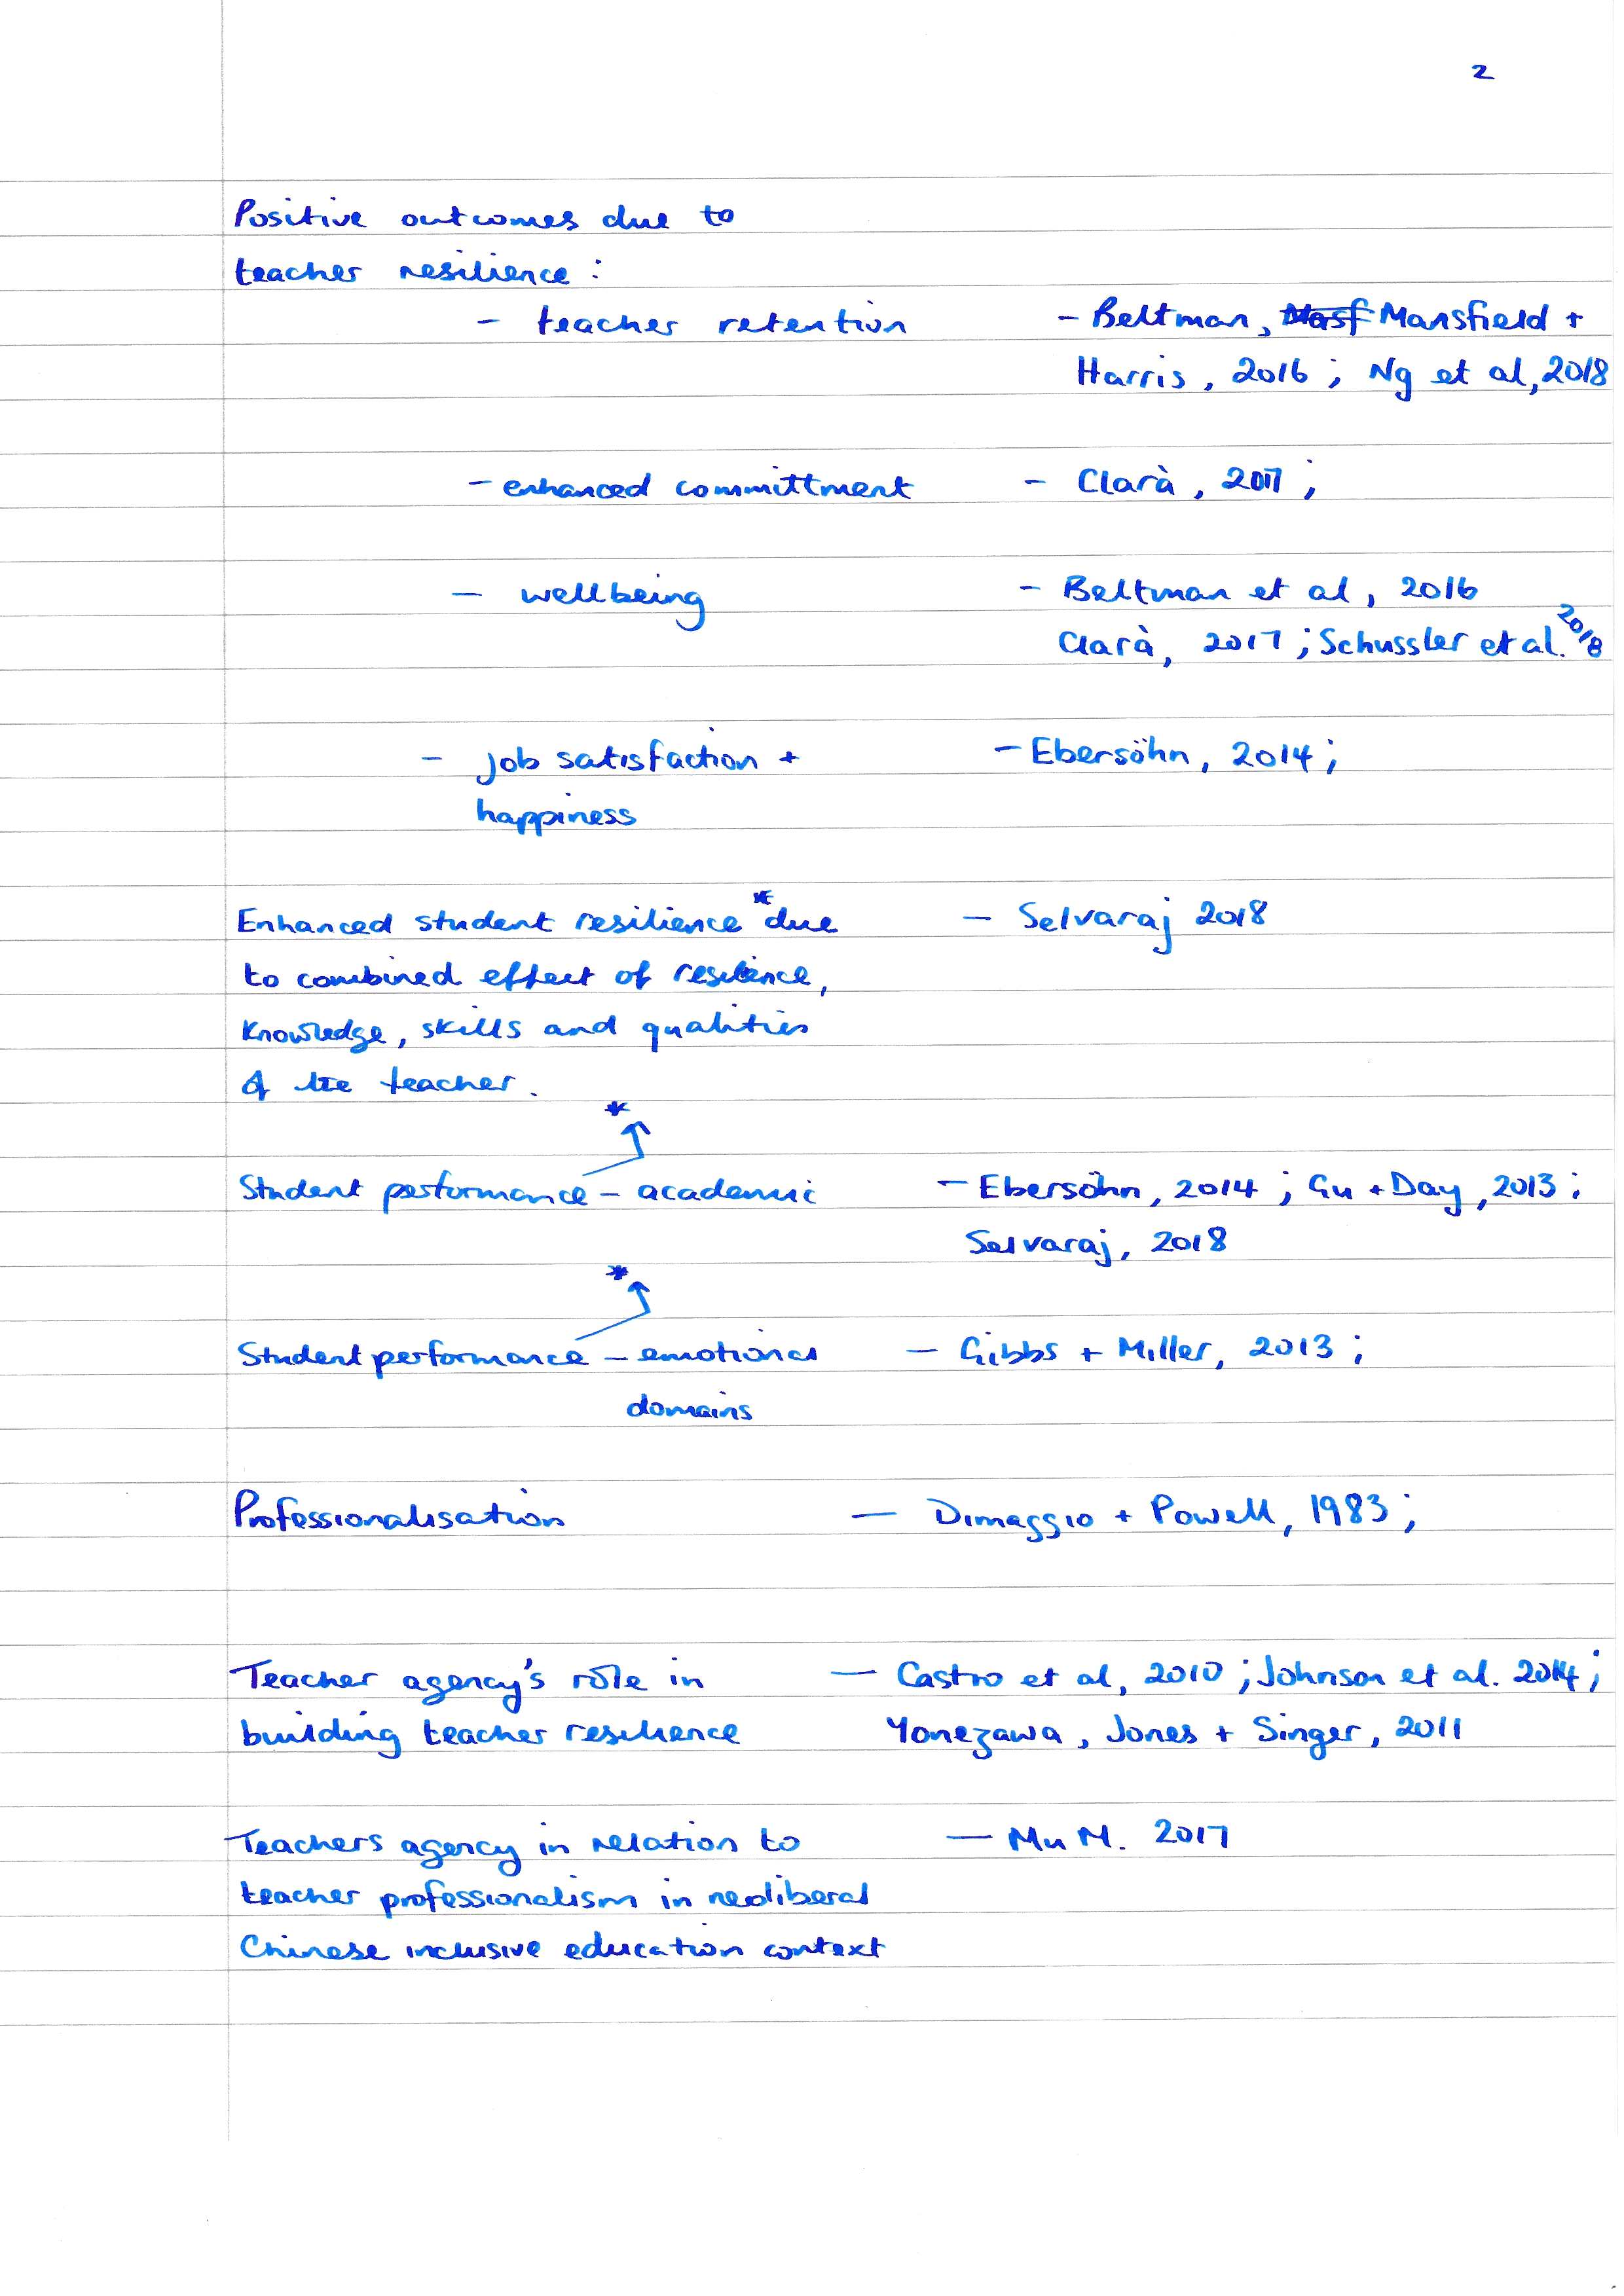 2
Positive outcomes due to
teacher resilience :
- teacher retention - Beltman, Masf Mansfield +
Harris, 2016 ; Ng et al, 2018
- enhanced committment - Clarà, 2017 ;
- wellbeing - Beltman et al, 2016
Clarà, 2017 ; Schussler et al. 2018
- job satisfaction + - Ebersöhn, 2014 ;
happiness
Enhanced student resilience * due - Selvaraj 2018
to combined effect of resilience,
knowledge, skills and qualities
of the teacher.
* ↑
Student performance - academic - Ebersöhn, 2014 ; Gu + Day, 2013 ;
Selvaraj, 2018
* ↑
Student performance - emotional - Gibbs + Miller, 2013 ;
domains
Professionalisation - Dimaggio + Powell, 1983 ;
Teacher agency's rôle in - Castro et al, 2010 ; Johnson et al. 2014 ;
building teacher resilience Yonezawa, Jones + Singer, 2011
Teachers agency in relation to - Mu M. 2017
teacher professionalism in neoliberal
Chinese inclusive education context